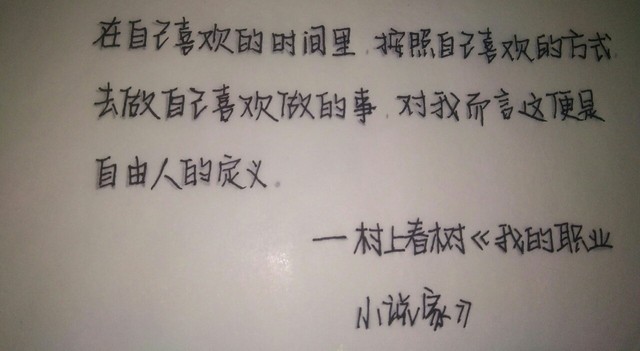 在自己喜欢的时间里.按照自己喜欢的方式
去做自己喜欢做的事.对我而言这便是
自由人的定义.
一村上春树《我的职业
小说家》